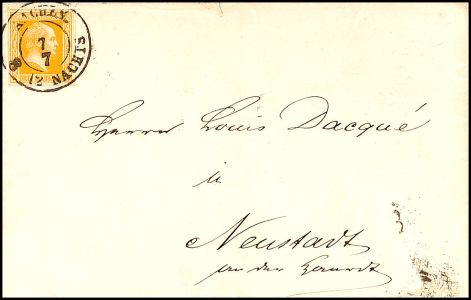 AACHEN
7
7
8 12 NACHTS
Herrn Louis Dacqué
in
Neustadt
an der Haardt